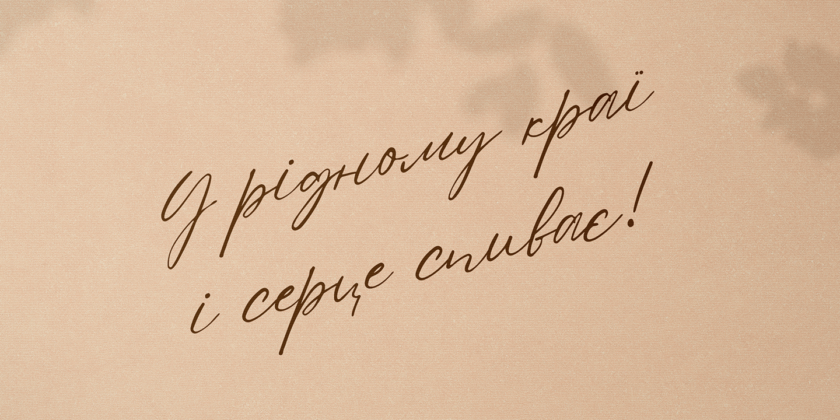 У рідному краї
і серце співає!